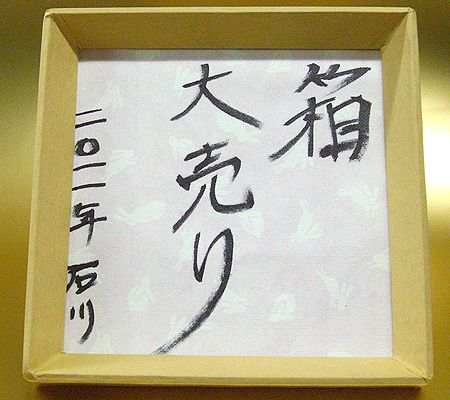 箱
大売り
二〇一一年 石川